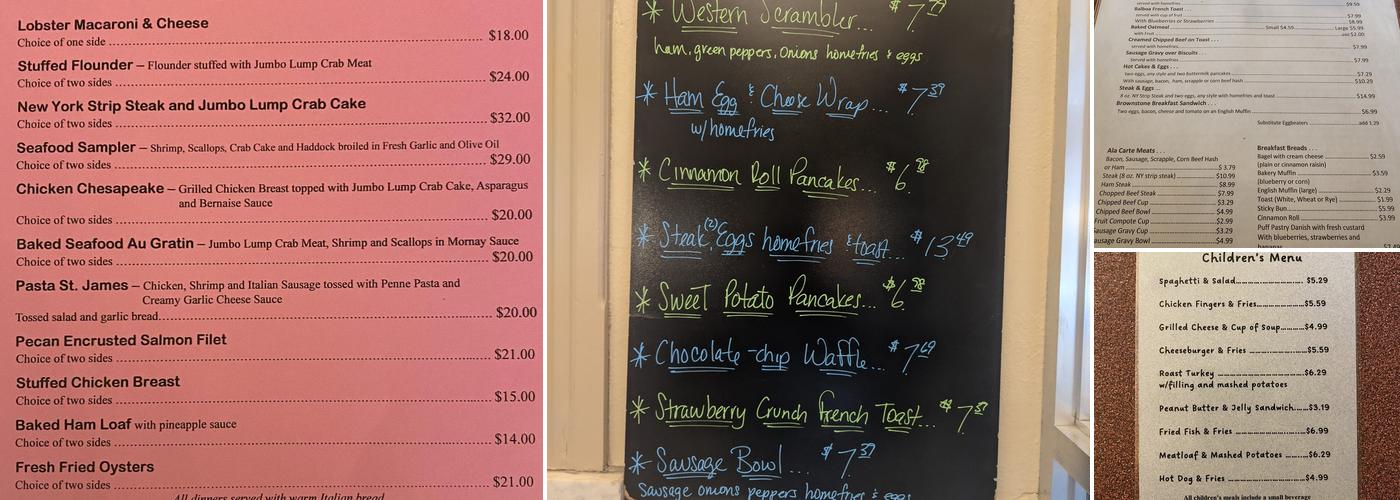 Lobster Macaroni & Cheese
Choice of one side ........ $18.00
Stuffed Flounder – Flounder stuffed with Jumbo Lump Crab Meat
Choice of two sides ........ $24.00
New York Strip Steak and Jumbo Lump Crab Cake
Choice of two sides ........ $32.00
Seafood Sampler – Shrimp, Scallops, Crab Cake and Haddock broiled in Fresh Garlic and Olive Oil
Choice of two sides ........ $29.00
Chicken Chesapeake – Grilled Chicken Breast topped with Jumbo Lump Crab Cake, Asparagus
and Bernaise Sauce
Choice of two sides ........ $20.00
Baked Seafood Au Gratin – Jumbo Lump Crab Meat, Shrimp and Scallops in Mornay Sauce
Choice of two sides ........ $20.00
Pasta St. James – Chicken, Shrimp and Italian Sausage tossed with Penne Pasta and
Creamy Garlic Cheese Sauce
Tossed salad and garlic bread........ $20.00
Pecan Encrusted Salmon Filet
Choice of two sides ........ $21.00
Stuffed Chicken Breast
Choice of two sides ........ $15.00
Baked Ham Loaf with pineapple sauce
Choice of two sides ........ $14.00
Fresh Fried Oysters
Choice of two sides ........ $21.00
All dinners served with warm Italian bread
* Western Scrambler... $7
ham, green peppers, onions homefries & eggs
* Ham Egg & Cheese Wrap... $7
w/homefries
* Cinnamon Roll Pancakes... $6.98
* Steak, (2) Eggs homefries & toast... $13.49
* Sweet Potato Pancakes... $6.98
* Chocolate-chip Waffle... $7.69
* Strawberry Crunch French Toast... $7
* Sausage Bowl... $7
Sausage onions peppers homefries & eggs
served with homefries $9.59
Balboa French Toast
served with cup of fruit $7.99
With Blueberries or Strawberries $8.99
Baked Oatmeal Small $4.59 Large $5.99
with Fruit add $2.00
Creamed Chipped Beef on Toast . . .
served with homefries $7.99
Sausage Gravy over Biscuits . . .
Served with homefries $7.99
Hot Cakes & Eggs . . .
two eggs, any style and two buttermilk pancakes $7.29
With sausage, bacon, ham, scrapple or corn beef hash $10.29
Steak & Eggs ...
8 oz. NY Strip Steak and two eggs, any style with homefries and toast $14.99
Brownstone Breakfast Sandwich . . .
Two eggs, bacon, cheese and tomato on an English Muffin $6.99
Substitute Eggbeaters add 1.29
Ala Carte Meats . . .
Bacon, Sausage, Scrapple, Corn Beef Hash
or Ham $ 3.79
Steak (8 oz. NY strip steak) $10.99
Ham Steak $8.99
Chopped Beef Steak $7.99
Chipped Beef Cup $3.29
Chipped Beef Bowl $4.99
Fruit Compote Cup $2.99
Sausage Gravy Cup $3.29
Sausage Gravy Bowl $4.99
Breakfast Breads . . .
Bagel with cream cheese $2.59
(plain or cinnamon raisin)
Bakery Muffin $3.59
(blueberry or corn)
English Muffin (large) $2.29
Toast (White, Wheat or Rye) $1.99
Sticky Bun $5.99
Cinnamon Roll $3.99
Puff Pastry Danish with fresh custard
With blueberries, strawberries and
Children's Menu
Spaghetti & Salad........ $5.29
Chicken Fingers & Fries........$5.59
Grilled Cheese & Cup of Soup........$4.99
Cheeseburger & Fries ........$5.59
Roast Turkey ........$6.29
w/filling and mashed potatoes
Peanut Butter & Jelly Sandwich......$3.19
Fried Fish & Fries ........$6.99
Meatloaf & Mashed Potatoes ........$6.29
Hot Dog & Fries ........$4.99
All children's meals include a small beverage